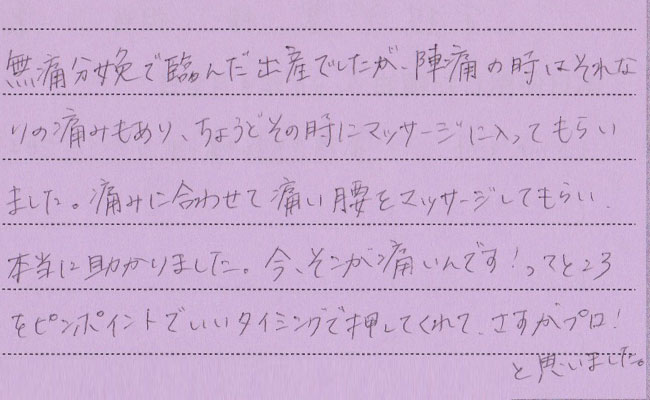 無痛分娩で臨んだ出産でしたが、陣痛の時はそれな
りの痛みもあり、ちょうどその時にマッサージに入ってもらい
ました。痛みに合わせて痛い腰をマッサージしてもらい、
本当に助かりました。今、そこが痛いんです！ってところ
をピンポイントでいいタイミングで押してくれて、さすがプロ！
と思いました。